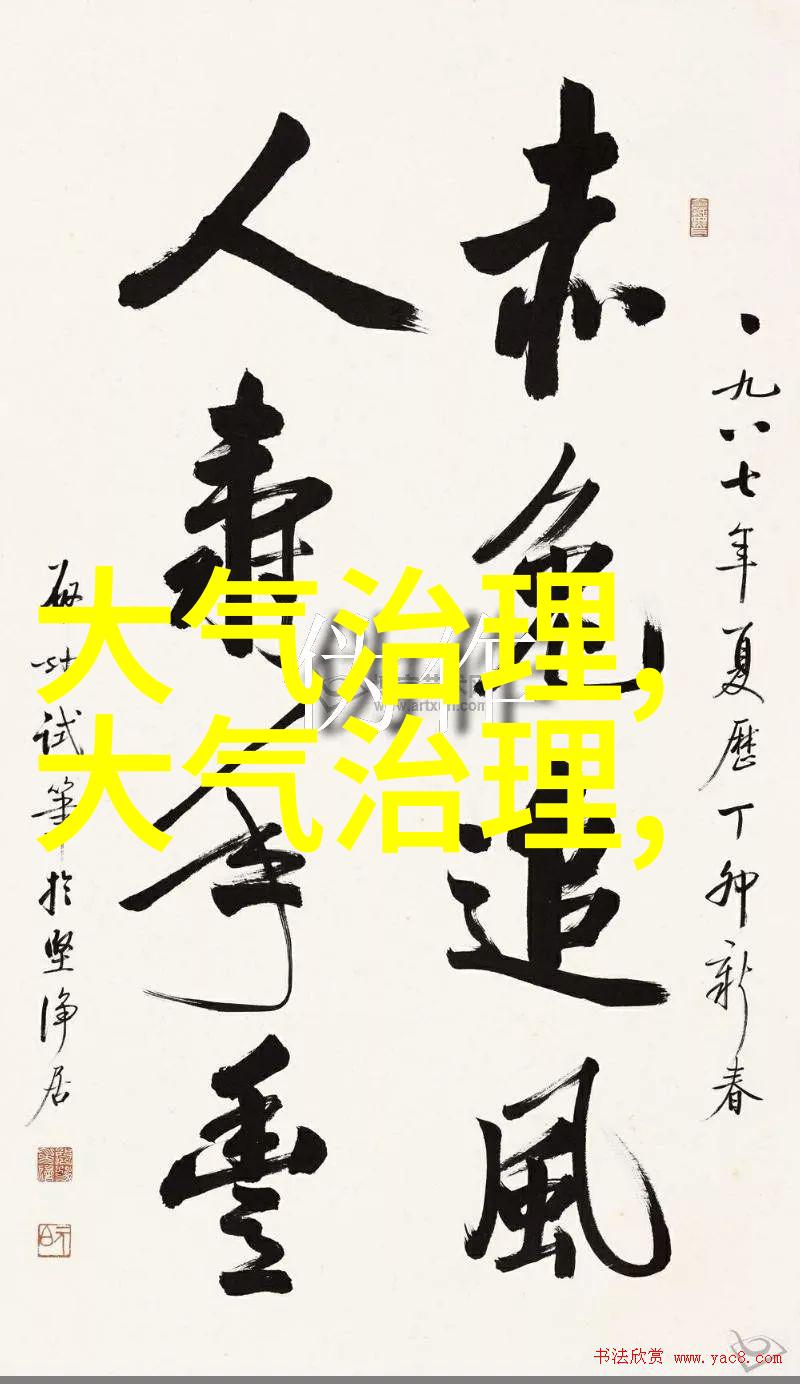 一九八七年夏历丁卯新春
赤兔追風
人壽年豐
啟功試筆於堅净居
大气治理,
大气治理,
伪作
www.artxun.com
书法欣赏 www.yac8.com